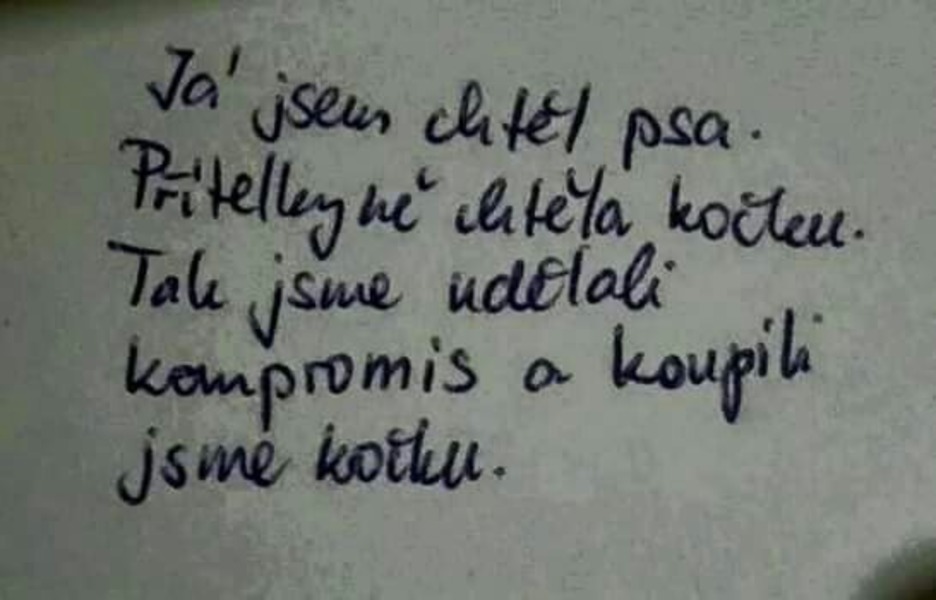 Já jsem chtěl psa.
Přítelkyně chtěla kočku.
Tak jsme udělali
kompromis a koupili
jsme kočku.